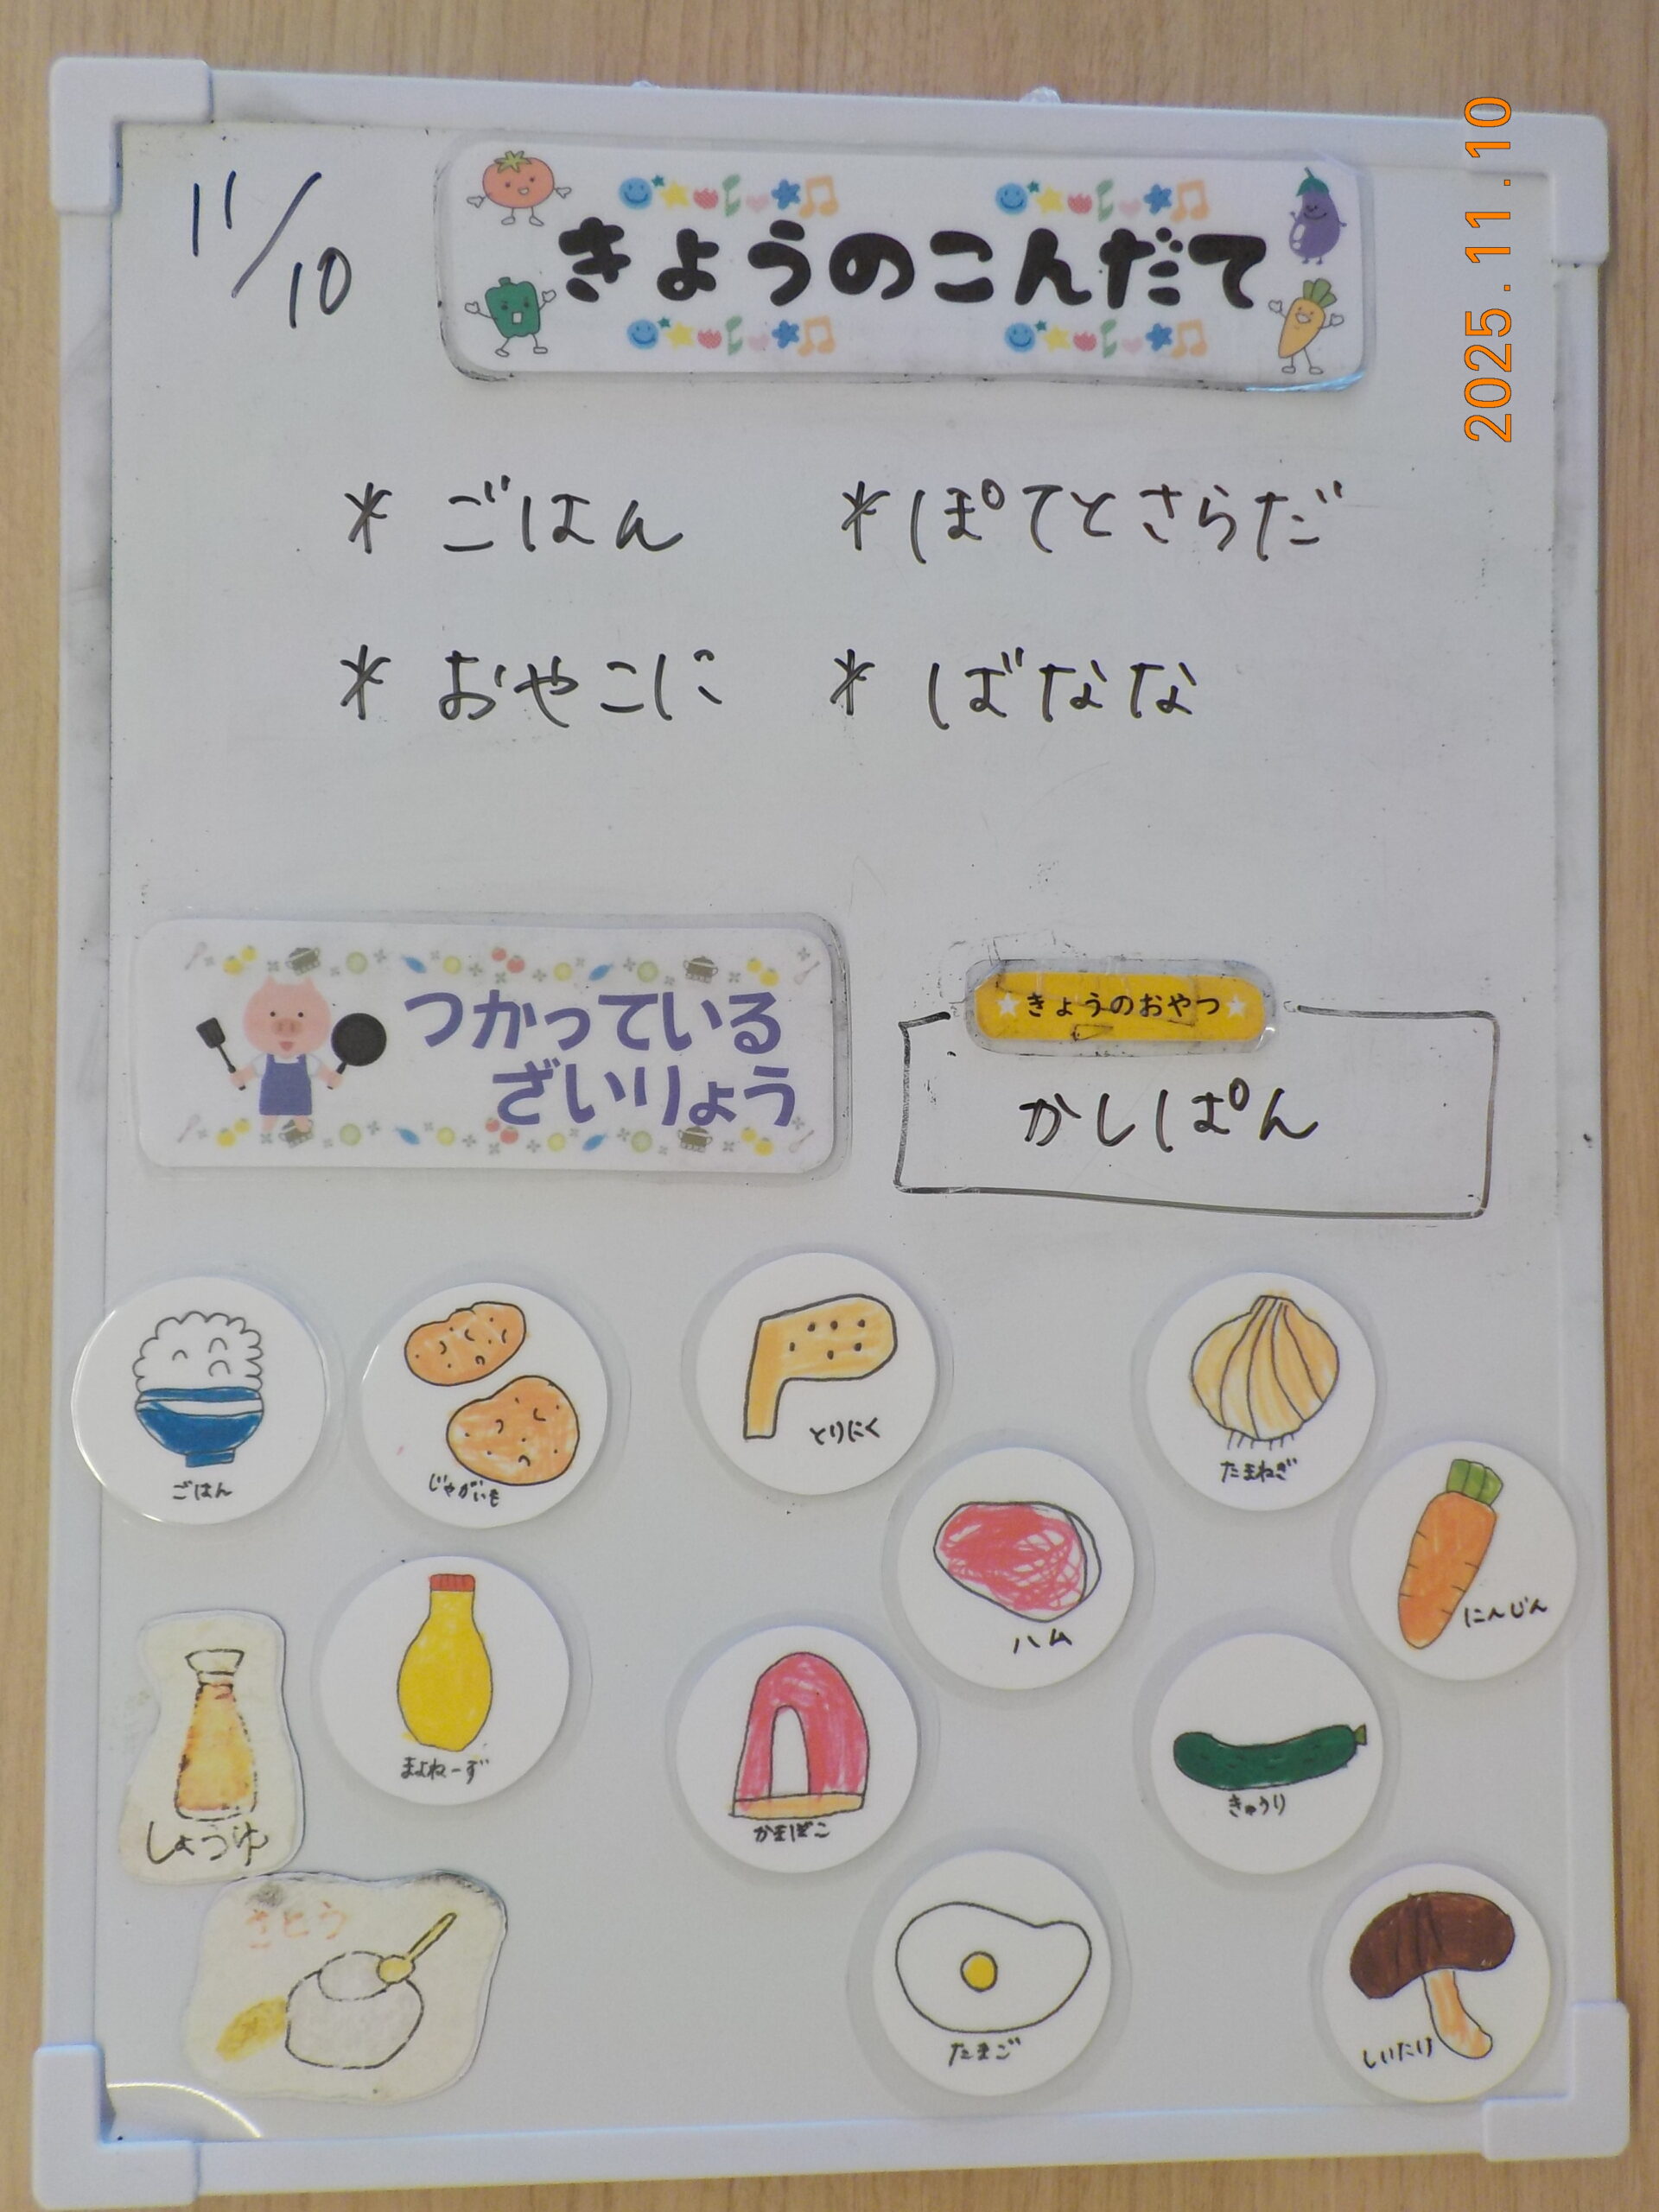 11/10
きょうのこんだて
2025.11.10
* ごはん
* ぽてとさらだ
* おやこに
* ばなな
つかっている
ざいりょう
きょうのおやつ
かしぱん
ごはん
じゃがいも
とりにく
たまねぎ
ハム
にんじん
まよねーず
しょうゆ
かまぼこ
きゅうり
さとう
たまご
しいたけ